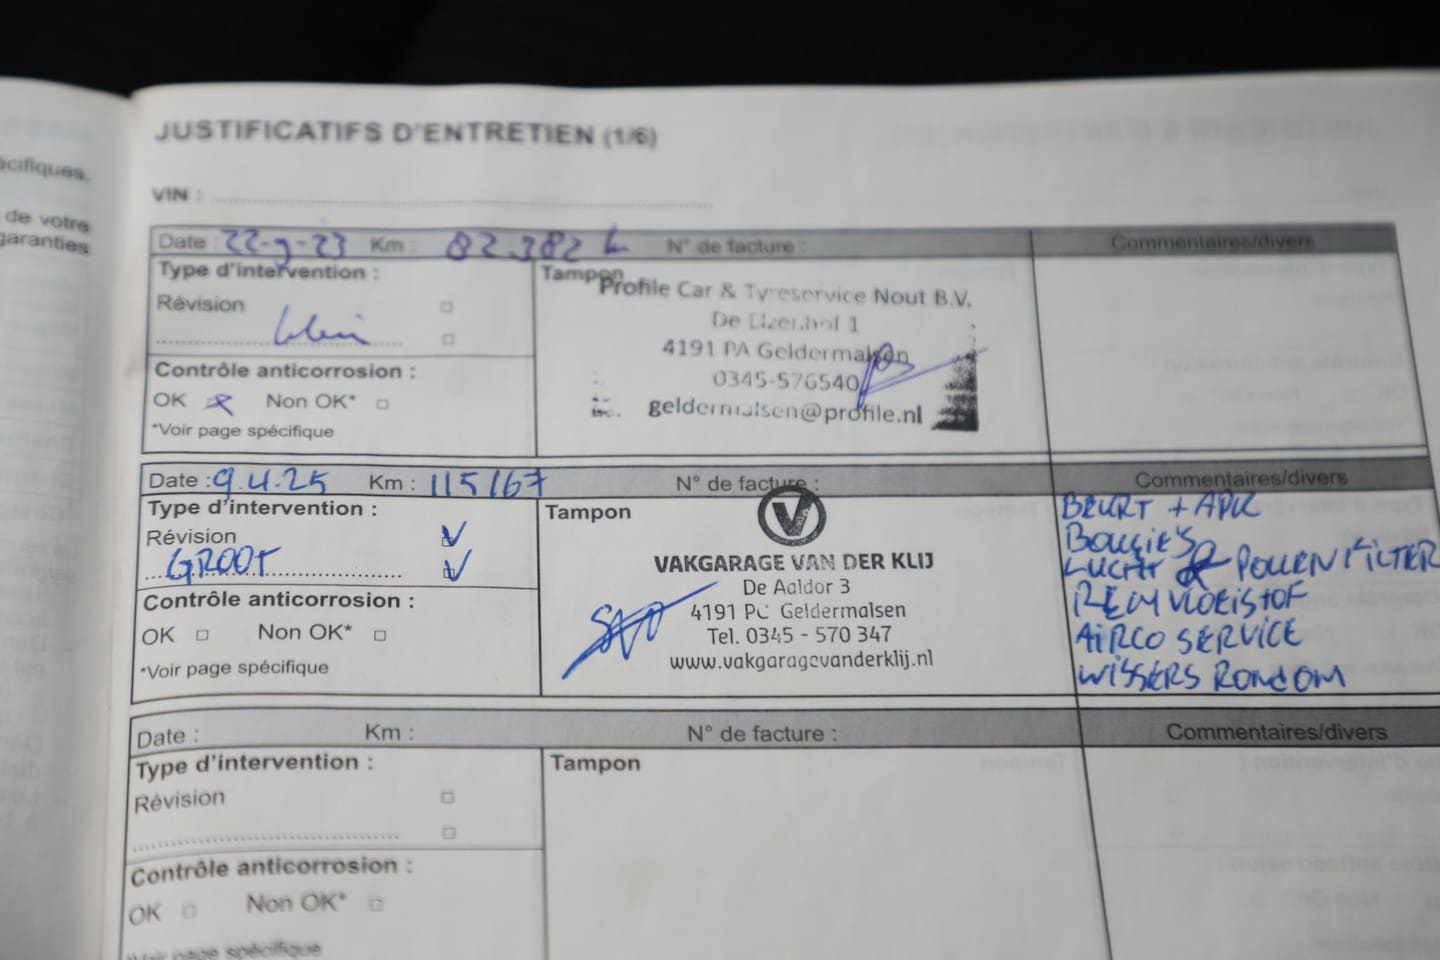 écifiques,
de votre
garanties
JUSTIFICATIFS D'ENTRETIEN (1/6)
VIN :
Date : 22-9-23 Km : 82.382 N° de facture : Commentaires/divers
Type d'intervention :
Révision
klein
Contrôle anticorrosion :
OK Non OK*
*Voir page spécifique
Tampon
Profile Car & Tyreservice Nout B.V.
De Elzenhof 1
4191 PA Geldermalsen
0345-576540
geldermalsen@profile.nl
Date : 9.4.25 Km : 115167 N° de facture : Commentaires/divers
Type d'intervention :
Révision
GROOT
Contrôle anticorrosion :
OK Non OK*
*Voir page spécifique
Tampon
V
VAKGARAGE VAN DER KLIJ
De Aaldor 3
4191 PC Geldermalsen
Tel. 0345 - 570 347
www.vakgaragevanderklij.nl
BEURT + APK
BOUGIE'S
LUCHT & POLLENFILTER
REMVLOEISTOF
AIRCO SERVICE
WISSERS RONDOM
Date : Km : N° de facture : Commentaires/divers
Type d'intervention :
Révision
Contrôle anticorrosion :
OK Non OK*
*Voir page spécifique
Tampon